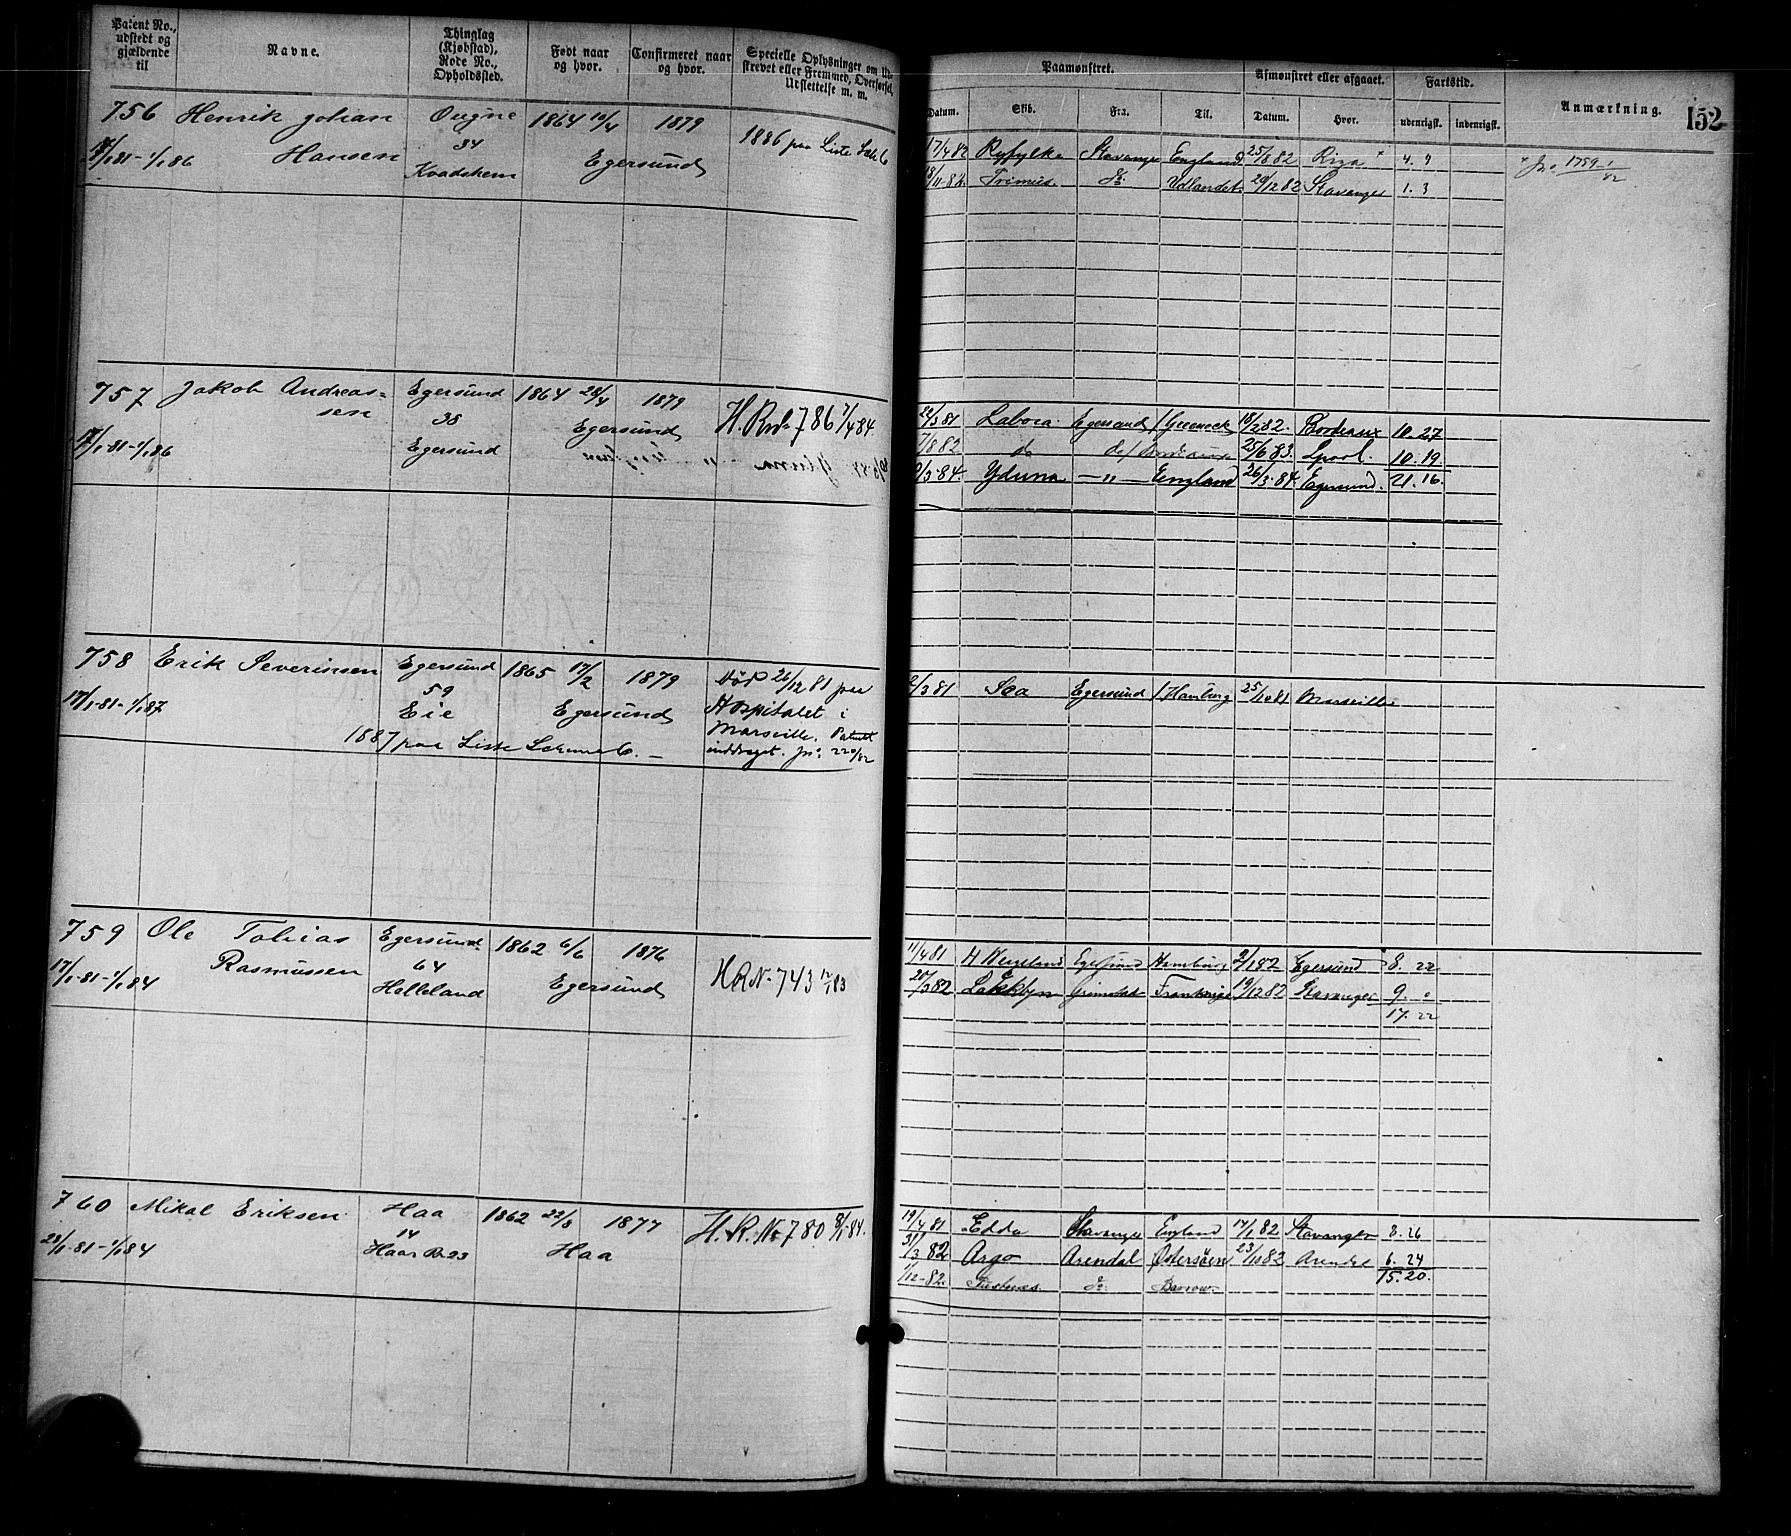 Patent No., udstedt og gjældende til
Navne.
Thinglag (Kjøbstad), Rode No., Opholdssted.
Født naar og hvor.
Confirmeret naar og hvor.
Specielle Oplysninger om Ud-
skrevet eller Fremmed, Overførsel,
Udslettelse m. m.
Paamønstret.
Afmønstret eller afgaaet.
Fartstid.
Anmærkning.
152
Datum. Skib. Fra. Til. Datum. Hvor. udenrigsk. indenrigsk.
756 Henrik Johan Ougne 1864 10/4 1879 1886 paa Liste
Hansen 34 Egersund
/1 81 - 1/1 86 Kvadshem
17/4 82 Ryfylke Stavanger England 25/8 82 Riga 4. 9
18/11 82 Primus do Udlandet 20/12 82 Stavanger 1. 3
757 Jakob Andreas- Egersund 1864 28/4 1879 H. R. No 786 1/1 84
sen 38 Egersund
17/1 81 - 1/1 86 Egersund
22/3 81 Labora Egersund Greenock 18/2 82. Bordeaux 10. 27
7/8 82 do do 25/6 83. Lpool. 10. 19
/3 84. Yduna — " — England 26/3 84. Egersund. 21. 16.
758 Erik Severinsen Egersund 1865 17/2 1879 Død 26/12 81 paa
59 Hospitalet i
17/1 81 - 1/1 87 Eie Egersund Marseille. Patent
1887 paa Liste inddraget. Jn: 220/82
/3 81 Saa Egersund Hamburg 25/10 81 Marseille
759 Ole Tobias Egersund 1862 6/6 1876
Rasmussen 64 Egersund H R No 743 12/1 83
17/1 81 - 1/1 84 Helleland
11/4 81 H Wergeland Egersund Hamburg 2/1 82 Egersund 8. 22
20/3 82 Grimstad Frankrige 19/12 82 Stavanger 9. 0
17. 22
760 Mikal Eriksen Haa 1862 22/8 1877 H. R. No 780 8/1 84.
14 Haa
28/1 81 - 1/1 84 Haar Br 23
19/4 81 Edda Stavanger England 14/1 82 Stavanger 8. 26
31/3 82 Argo Arendal Østersøen 23/10 82 Arendal 6. 24
15. 20.
1/12 82. do Barrow